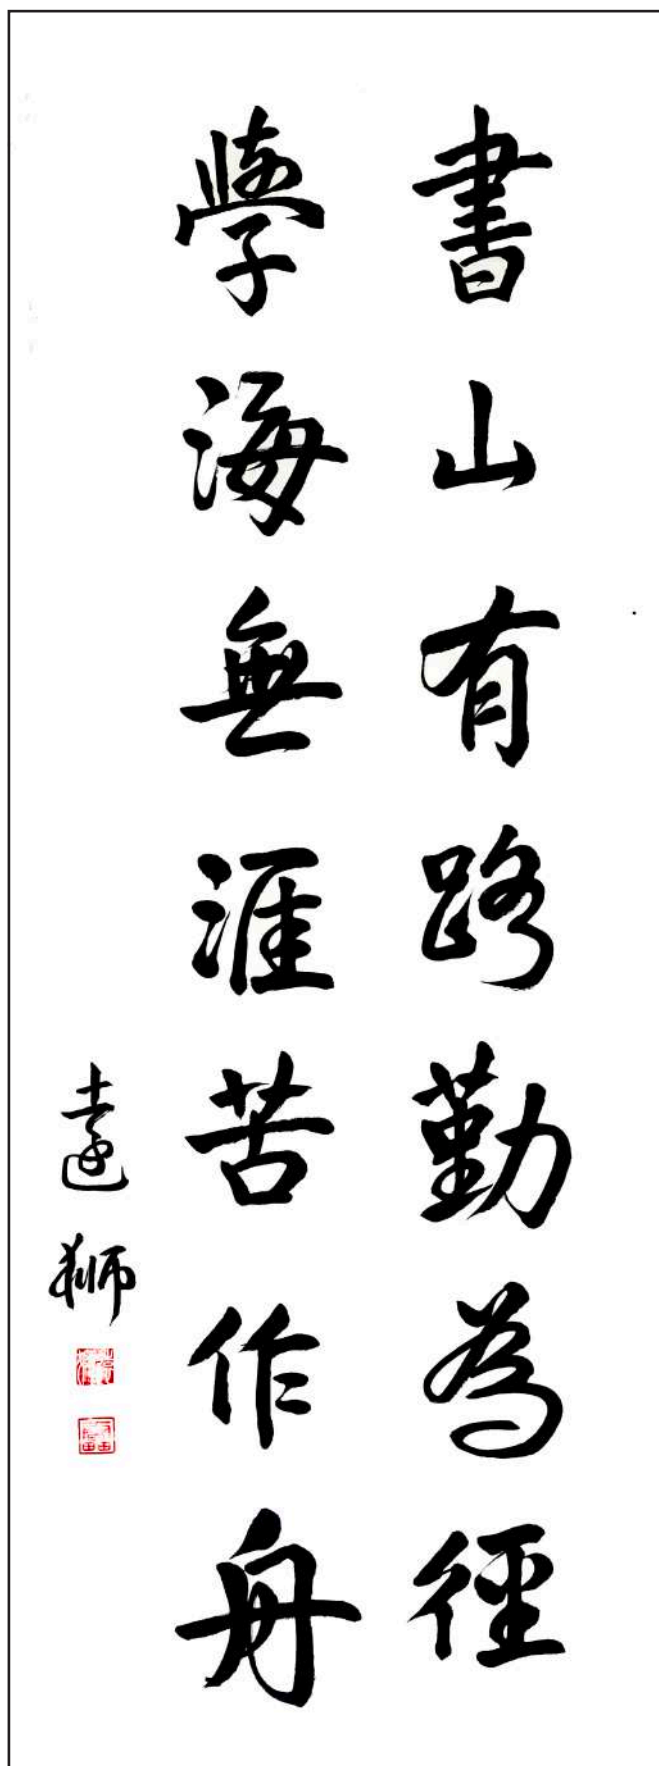 書山有路勤為徑
學海無涯苦作舟
遠獅